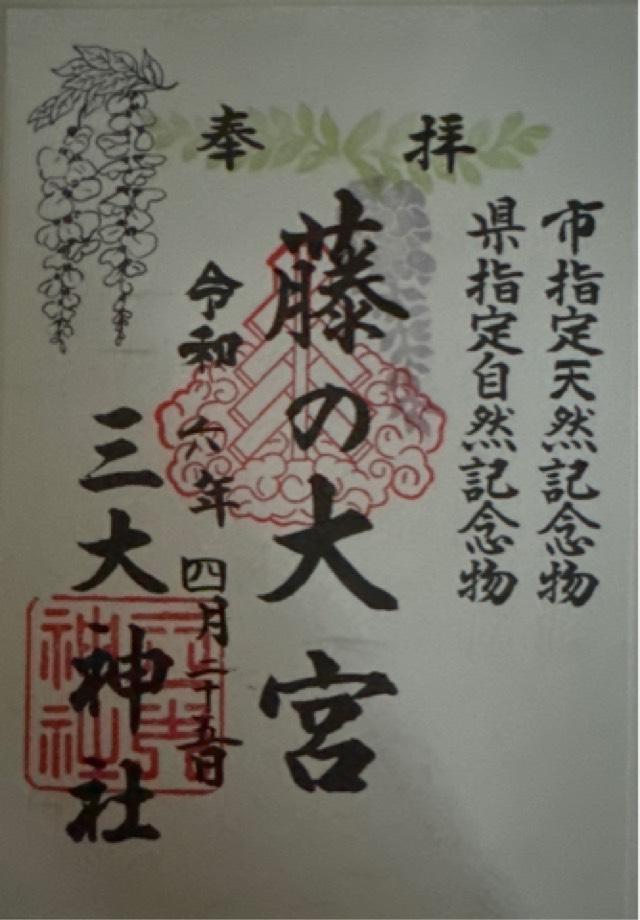 奉拝
市指定天然記念物
県指定自然記念物
藤の大宮
令和六年四月二十五日
三大神社